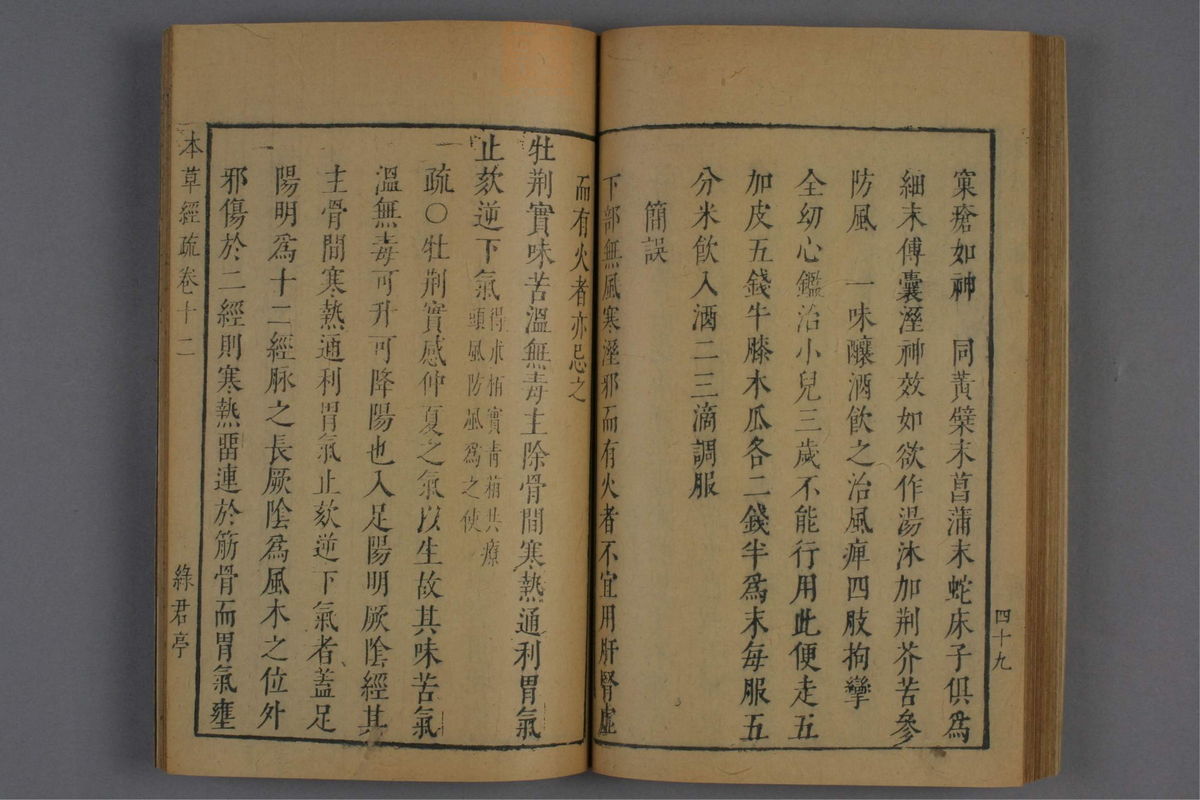 窠瘡如神　同黃蘗末菖蒲末蛇床子俱爲
細末傅囊溼神效如欲作湯沐加荆芥苦參
防風　一味釀酒飮之治風痺四肢拘攣
全幼心鑑治小兒三歲不能行用此便走五
加皮五錢牛膝木瓜各二錢半爲末每服五
分米飮入酒二三滴調服
簡誤
下部無風寒溼邪而有火者不宜用肝腎虛
四十九
而有火者亦忌之
牡荆實味苦溫無毒主除骨間寒熱通利胃氣
止欬逆下氣得朮栢實靑葙共療
頭風防風爲之使
疏〇牡荆實感仲夏之氣以生故其味苦氣
溫無毒可升可降陽也入足陽明厥陰經其
主骨間寒熱通利胃氣止欬逆下氣者蓋足
陽明爲十二經脉之長厥陰爲風木之位外
邪傷於二經則寒熱畱連於筋骨而胃氣壅
本草經疏卷十二
綠君亭